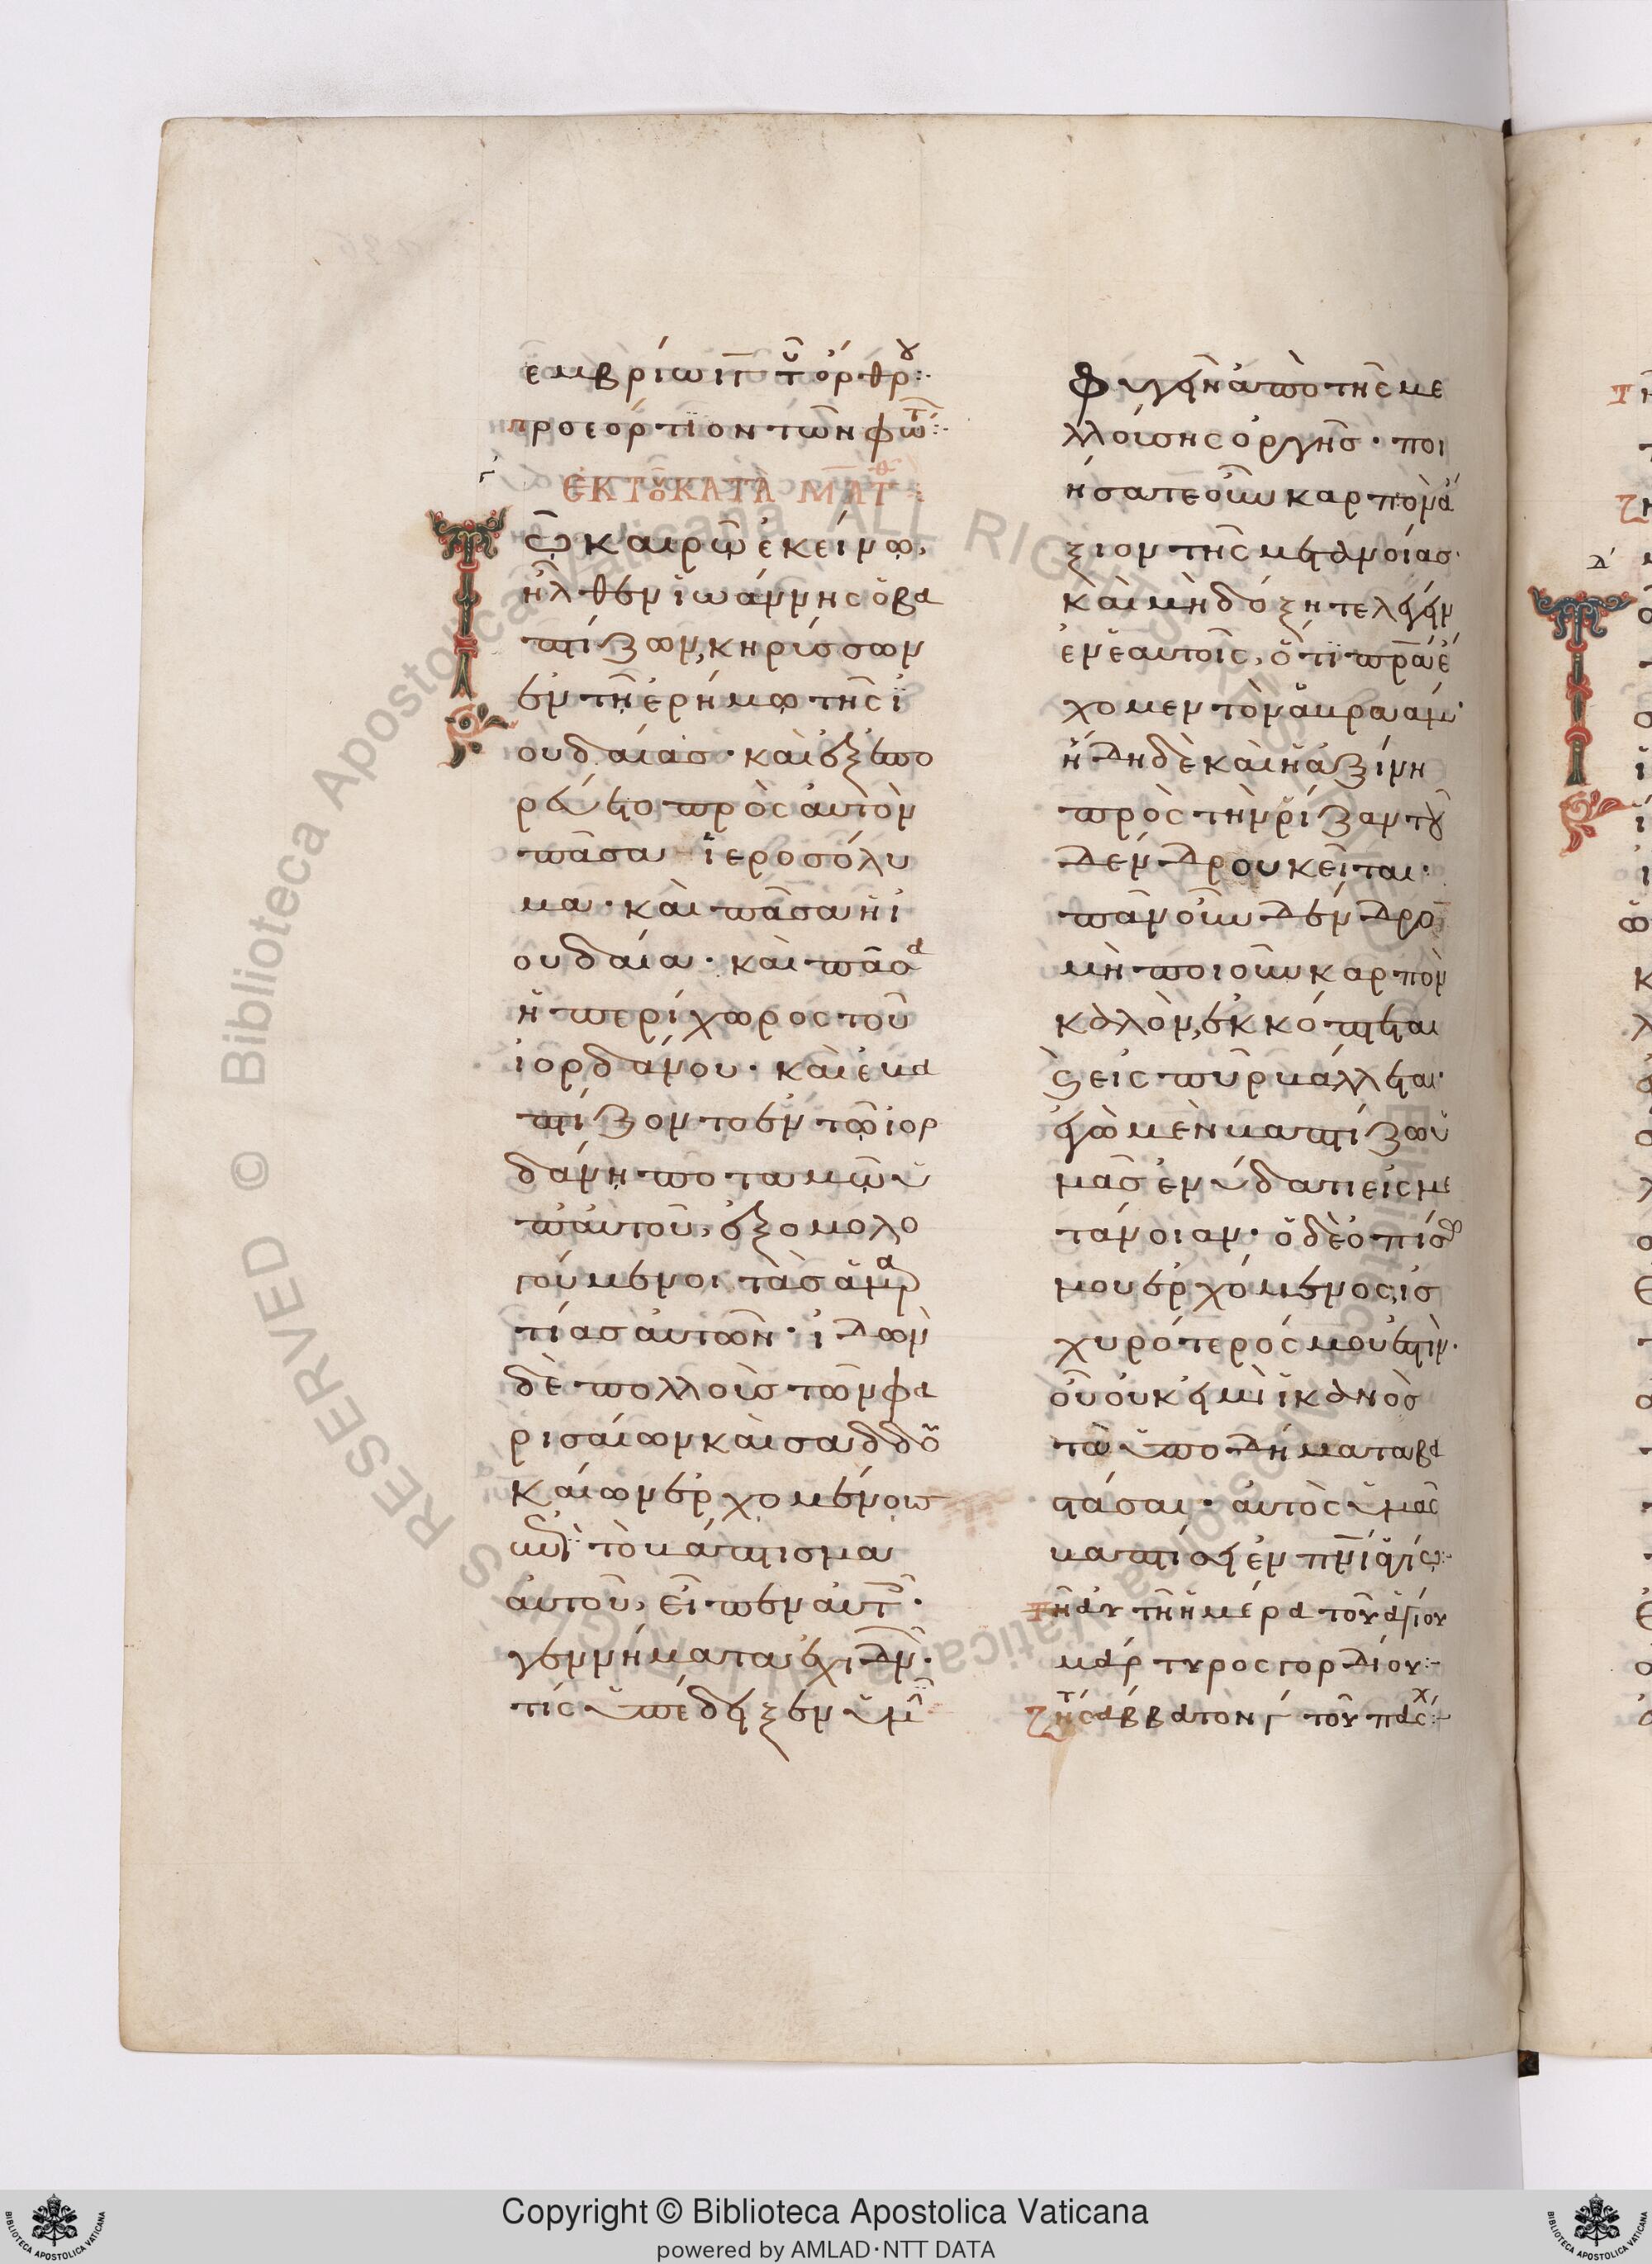 ἐμβρίω ιγ τοῦ ὄρθρου:·
προεόρτιον τῶν φώτ:·
γ
ἐκ τοῦ κατὰ Ματθ:
Τῶ καιρῶ ἐκείνω,
ἦλθεν ἰωάννης ὁ βα
πτίζων, κηρύσσων
ἐν τῆ ἐρήμω τῆς ἰ
ουδαίας· καὶ ἐξεπο
ρεύετο πρὸς αὐτὸν
πᾶσα ἱεροσόλυ
μα· καὶ πᾶσα ἡ ἰ
ουδαία· καὶ πᾶσα
ἡ περίχωρος τοῦ
ἰορδάνου· καὶ ἐβα
πτίζοντο ἐν τῶ ἰορ
δάνη ποταμῶ ὑ
π' αὐτοῦ, ἐξομολο
γούμενοι τὰς ἁμαρ
τίας αὐτῶν· ἰδὼν
δὲ πολλοὺς τῶν φα
ρισαίων καὶ σαδδου
καίων ἐρχομένους
ἐπὶ τὸ βάπτισμα
αὐτοῦ, εἶπεν αὐτοῖς·
γεννήματα ἐχιδνῶν·
τίς ὑπέδειξεν ὑμῖν
φυγεῖν ἀπὸ τῆς με
λλούσης ὀργῆς· ποι
ήσατε οὖν καρπὸν ἄ
ξιον τῆς μετανοίας·
καὶ μὴ δόξητε λέγειν
ἐν ἑαυτοῖς, ὅτι πρα ἔ
χομεν τὸν ἀβραάμ·
ἤδη δὲ καὶ ἡ ἀξίνη
πρὸς τὴν ρίζαν τοῦ
δένδρου κεῖται·
πᾶν οὖν δένδρον
μὴ ποιοῦν καρπὸν
καλὸν, ἐκκόπτεται
καὶ εἰς πῦρ βάλλεται·
ἐγὼ μὲν βαπτίζω ὑ
μᾶς ἐν ὕδατι εἰς με
τάνοιαν· ὁ δὲ ὀπίσω
μου ἐρχόμενος, ἰσ
χυρότερός μου ἐστὶν·
οὗ οὐκ εἰμὶ ἱκανὸς
τὰ ὑποδήματα βα
στάσαι· αὐτὸς ὑμᾶς
βαπτίσει ἐν πνι ἁγίω:·
τῆ αυ τῆ ἡμέρα τοῦ ἁγίου
μάρτυρος γορδίου:·
ζητ σάββατον γ τοῦ πάσχ:·